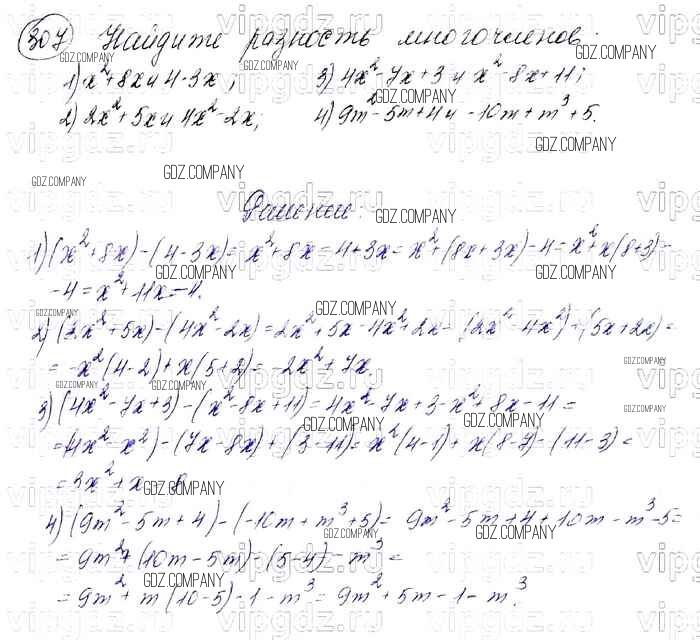 307 Найдите разность многочленов:
1) x²+8x и 4-3x; 3) 4x²-7x+3 и x²-8x+11;
2) 2x²+5x и 4x²-2x; 4) 9m²-5m+4 и -10m+m³+5.
Решение:
1) (x²+8x)-(4-3x)= x²+8x-4+3x= x²+(8x+3x)-4= x²+x(8+3)-
-4= x²+11x-4.
2) (2x²+5x)-(4x²-2x)=2x²+5x-4x²+2x= (2x²-4x²)+(5x+2x)=
= -x²(4-2)+x(5+2)= -2x²+7x.
3) (4x²-7x+3)-(x²-8x+11)= 4x²-7x+3-x²+8x-11=
=(4x²-x²)-(7x-8x)+(3-11)= x²(4-1)+x(8-7)-(11-3)=
=3x²+x-8.
4) (9m²-5m+4)-(-10m+m³+5)= 9m²-5m+4+10m-m³-5=
= 9m²+(10m-5m)-(5-4)-m³=
= 9m²+m(10-5)-1-m³= 9m²+5m-1-m³.